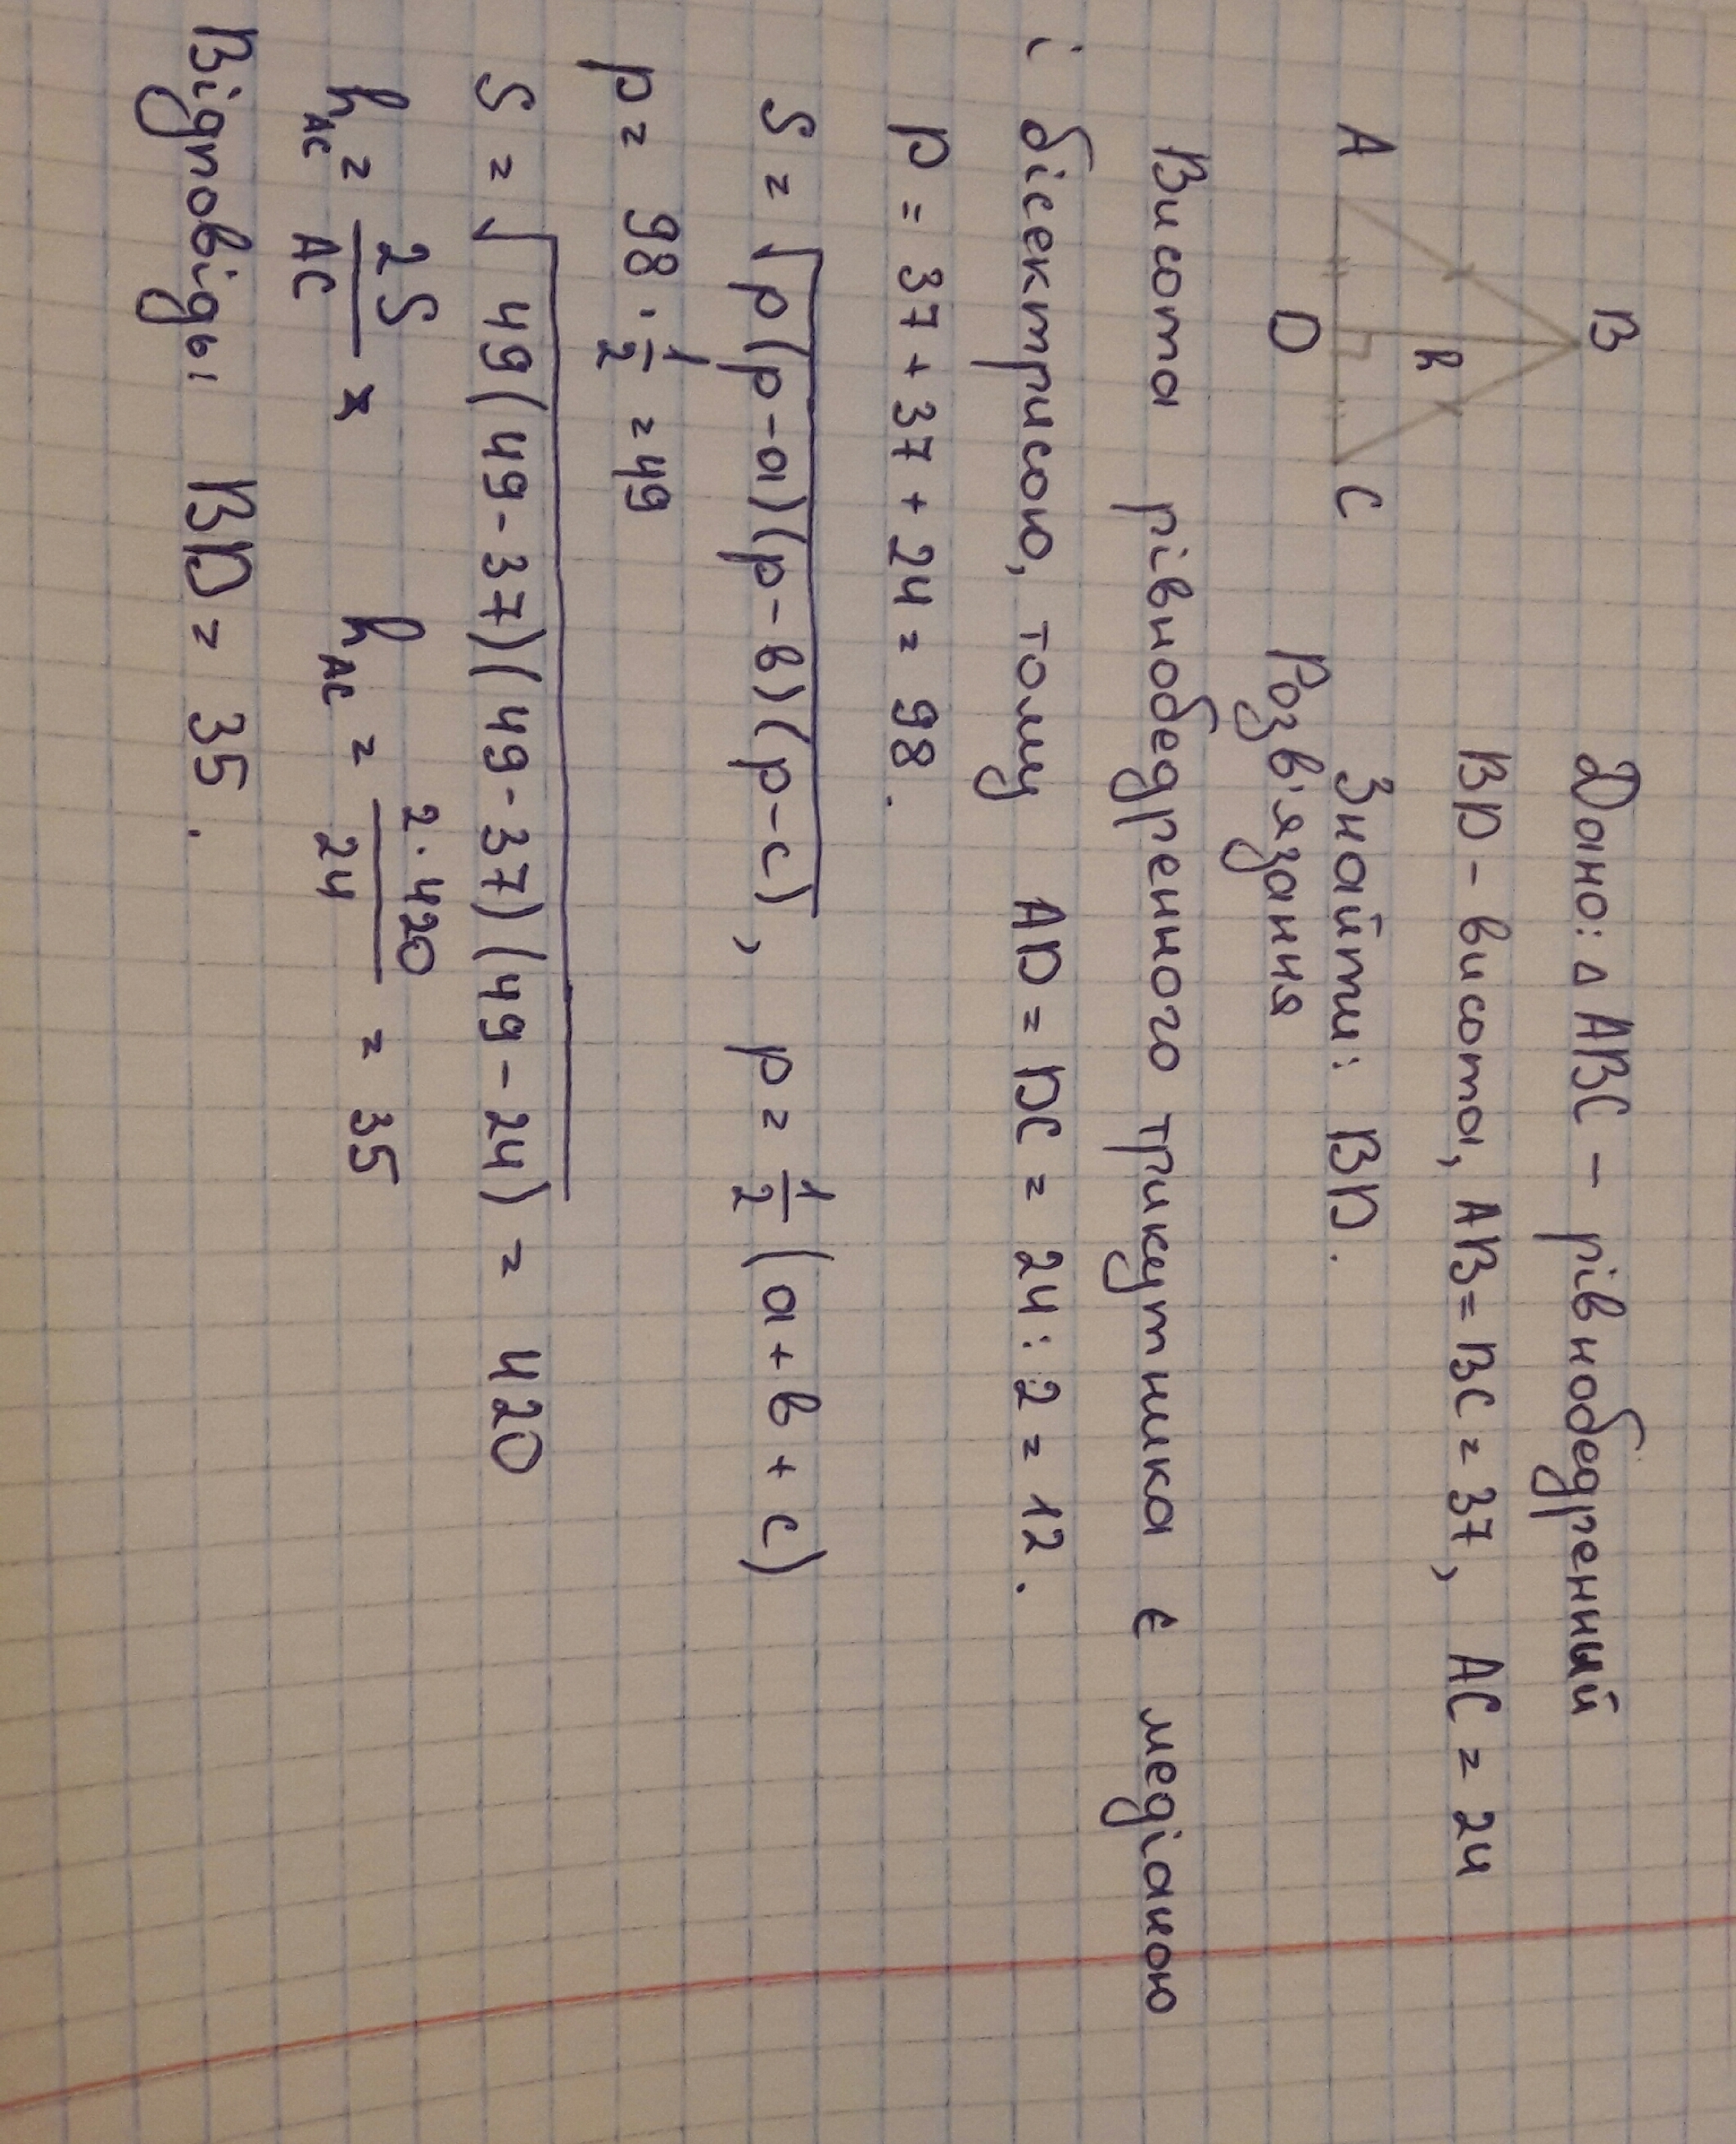 B
A
C
D
h
Дано: △ ABC - рівнобедренний
BD - висота, AB = BC = 37, AC = 24
Знайти: BD.
Розв'язання
Висота рівнобедренного трикутника є медіаною
і бісектрисою, тому AD = DC = 24 : 2 = 12.
P = 37 + 37 + 24 = 98.
S = √p(p-a)(p-в)(p-c), p = 1/2 (a + в + c)
p = 98 · 1/2 = 49
S = √49(49-37)(49-37)(49-24) = 420
h_AC = 2S/AC h_AC = 2·420/24 = 35
Відповідь: BD = 35.